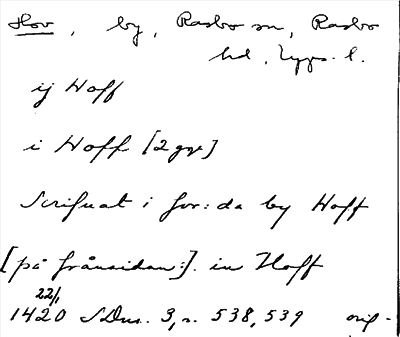 Hov, by, Rasbo sn, Rasbo
hd, Upps. l.
ij Hoff
i Hoff [2 ggr]
Scrifuat i for:da by Hoff
[på frånsidan:]. in Hoff
22/1
1420 SDns. 3, s. 538, 539 orig-